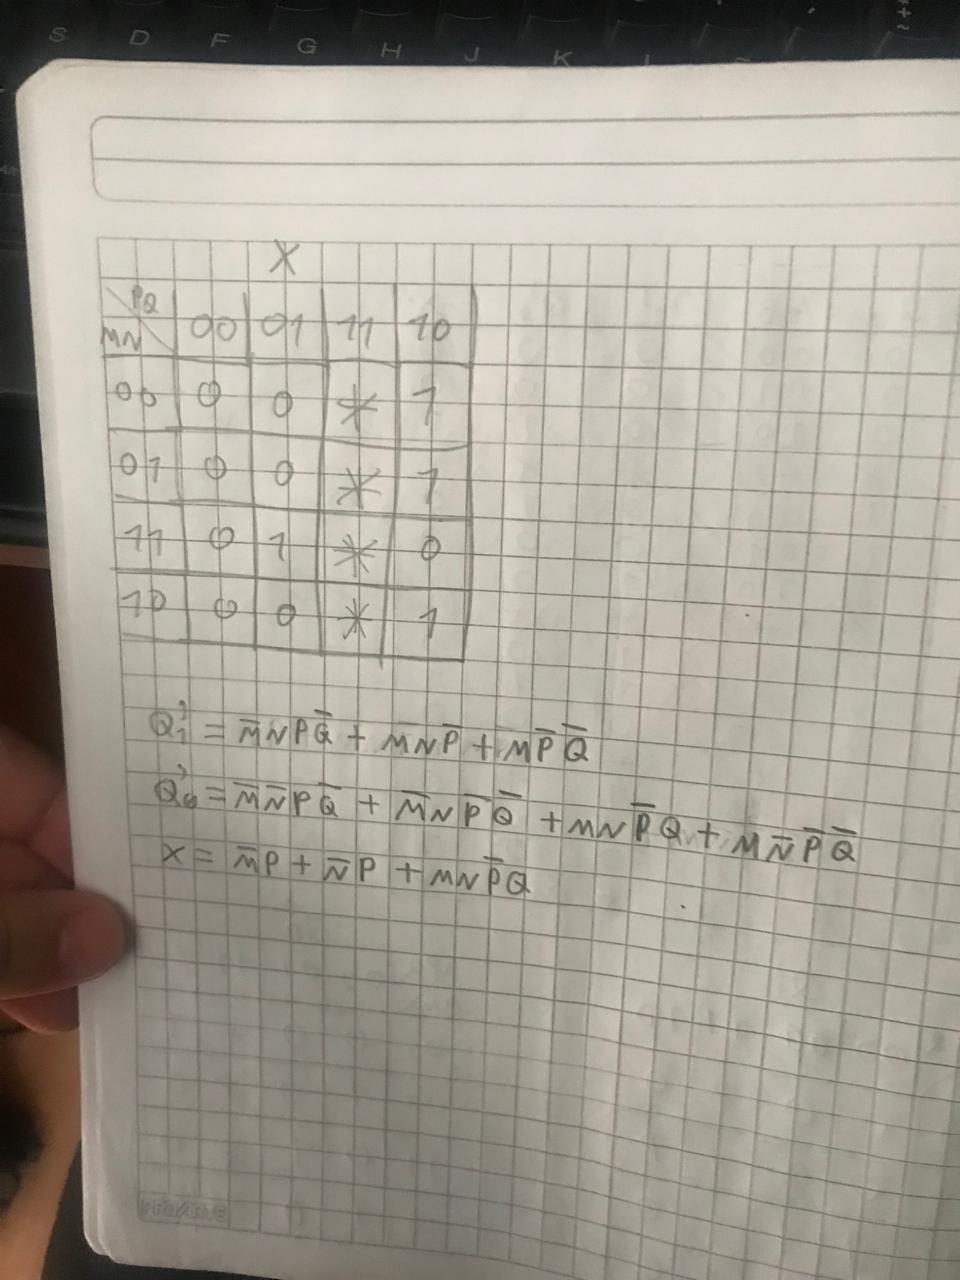 S D F G H J K L
X
PQ
MN 00 01 11 10
00 0 0 * 1
01 0 0 * 1
11 0 1 * 0
10 0 0 * 1
Q₁' = M̅NPQ̅ + M̅NP̅ + MP̅Q̅
Q₀' = M̅N̅PQ̅ + M̅NP̅Q̅ + MNP̅Q + MN̅P̅Q̅
X = M̅P + N̅P + MNP̅Q